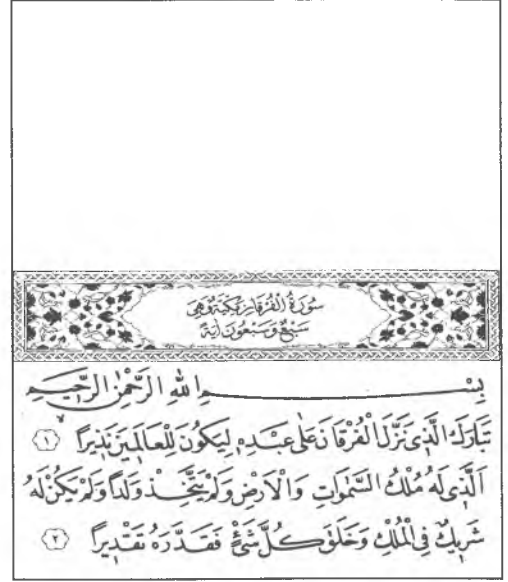 سُورَةُ الْفُرْقَانِ مَكِّيَّةٌ وَهِيَ
سَبْعٌ وَسَبْعُونَ اٰيَةً
بِسْمِ اللّٰهِ الرَّحْمٰنِ الرَّحِيمِ
تَبَارَكَ الَّذِي نَزَّلَ الْفُرْقَانَ عَلٰى عَبْدِهِ لِيَكُونَ لِلْعَالَمِينَ نَذِيرًاۙ ﴿١﴾
اَلَّذِي لَهُ مُلْكُ السَّمٰوَاتِ وَالْاَرْضِ وَلَمْ يَتَّخِذْ وَلَدًا وَلَمْ يَكُنْ لَهُ
شَرِيكٌ فِي الْمُلْكِ وَخَلَقَ كُلَّ شَيْءٍ فَقَدَّرَهُ تَقْدِيرًا ﴿٢﴾